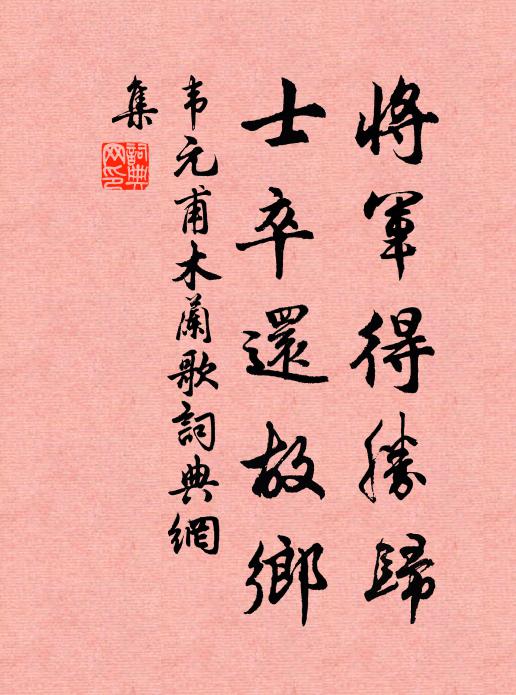 將軍得勝歸
士卒還故鄉
韦元甫木蘭歌詞典網
集
詞典
网印